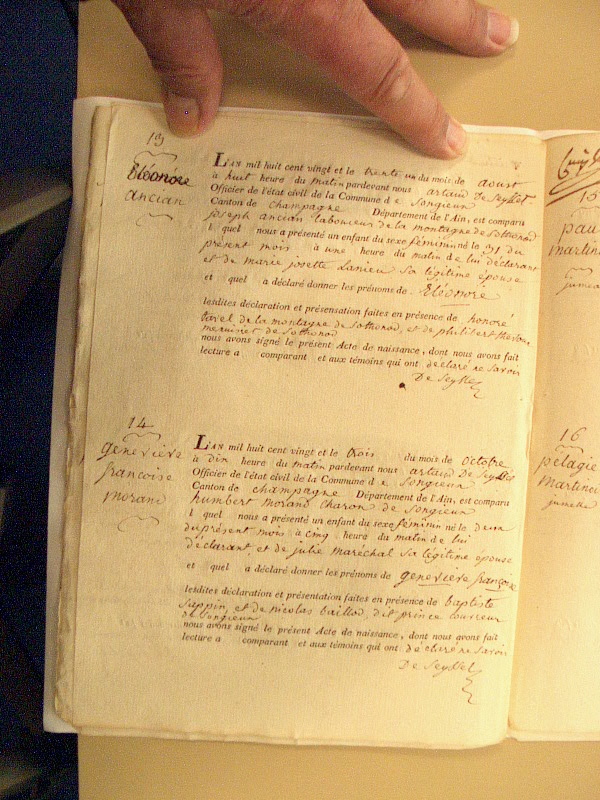 13
Eléonore
ancian
LAN mil huit cent vingt et le trente un du mois de aoust
à huit heure du matin pardevant nous artaud de Seyssel
Officier de l'état civil de la Commune de Songieux
Canton de champagne Département de l'Ain, est comparu
joseph ancian laboureur de la montagne de Sothonod
l quel nous a présenté un enfant du sexe féminin né le 31 du
présent mois à une heure du matin de lui déclarant
et de marie josette Lanieu Sa légitime épouse
et quel a déclaré donner les prénoms de Eléonore
lesdites déclaration et présensation faites en présence de honoré
tavel de la montagne de Sothonod, et de philibert
menuiret de Sothonod
nous avons signé le présent Acte de naissance, dont nous avons fait
lecture a comparant et aux témoins qui ont déclaré ne Savoir
De Seyssel
14
geneviève
françoise
morand
LAN mil huit cent vingt et le trois du mois de Octobre
à dix heure du matin pardevant nous artaud De Seyssel
Officier de l'état civil de la Commune de Songieux
Canton de champagne Département de l'Ain, est comparu
humbert morand charon de Songieux
l quel nous a présenté un enfant du sexe féminin né le deux
du présent mois à cinq heure du matin de lui
déclarant et de julie maréchal Sa légitime épouse
et quel a déclaré donner les prénoms de geneviève françoise
lesdites déclaration et présentation faites en présence de baptiste
Sappin, et de nicolas baillod, dit prince couvreur
de Songieux
nous avons signé le présent Acte de naissance, dont nous avons fait
lecture a comparant et aux témoins qui ont déclaré ne Savoir
De Seyssel
15
pau
martine
jumea
16
pélagie
martinei
jumelle